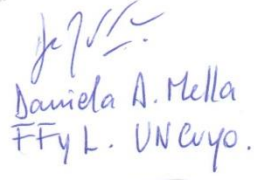 Daniela A. Mella
FFyL. UNCuyo.